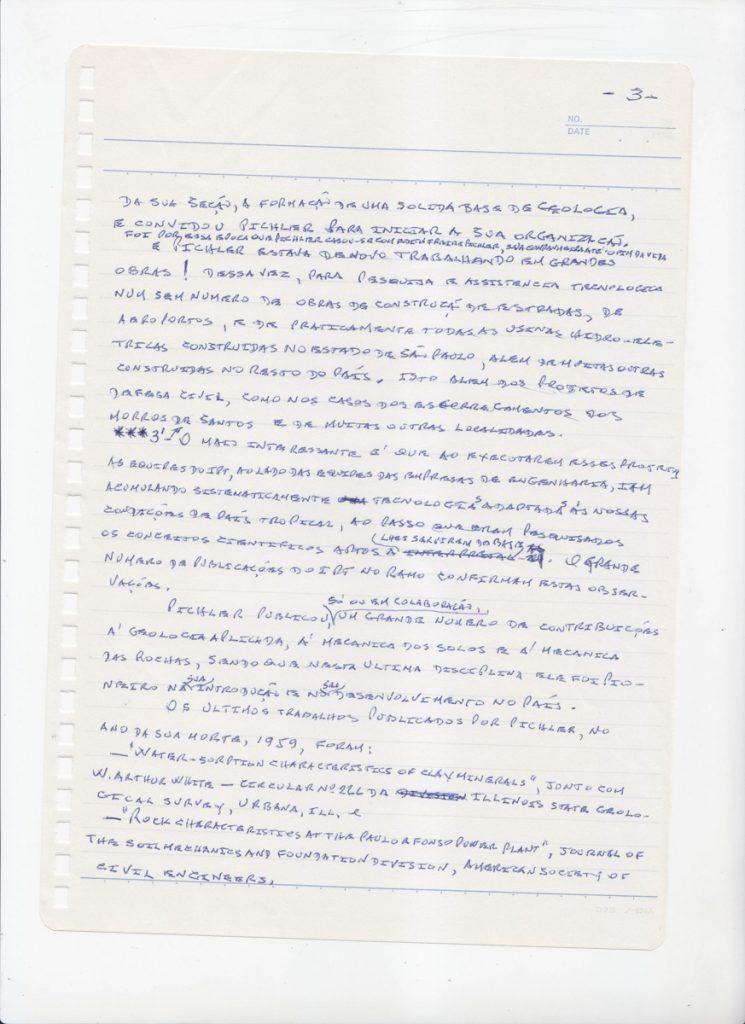 - 3 -
NO.
DATE
DA SUA SEÇÃO, A FORMAÇÃO DE UMA SOLIDA BASE DE GEOLOGIA,
E CONVIDOU PICHLER PARA INICIAR A SUA ORGANIZAÇÃO.
FOI POR ESSA EPOCA QUE PICHLER CASOU-SE COM PICHLER, SUA COMPANHEIRA ATÉ O FIM DA VIDA
E PICHLER ESTAVA DE NOVO TRABALHANDO EM GRANDES
OBRAS! DESSA VEZ, PARA PESQUISA E ASSISTENCIA TECNOLOGICA
NUM SEM NUMERO DE OBRAS DE CONSTRUÇÃO DE ESTRADAS, DE
AEROPORTOS, E DE PRATICAMENTE TODAS AS USINAS HIDRO-ELE-
TRICAS CONSTRUIDAS NO ESTADO DE SÃO PAULO, ALEM DE MUITAS OUTRAS
CONSTRUIDAS NO RESTO DO PAÍS. ISTO ALEM DOS PROJETOS DE
DEFESA CIVIL, COMO NOS CASOS DOS ESCORREGAMENTOS DOS
MORROS DE SANTOS E DE MUITAS OUTRAS LOCALIDADES.
*** O MAIS INTERESSANTE É QUE AO EXECUTAREM ESSES PROJETOS
AS EQUIPES DO IPT, AO LADO DAS EQUIPES DAS EMPRESAS DE ENGENHARIA, IAM
ACUMULANDO SISTEMATICAMENTE TECNOLOGIAS ADAPTADAS ÀS NOSSAS
CONDIÇÕES DE PAÍS TROPICAL, AO PASSO QUE ERAM PESQUISADOS
LHES SERVIRAM DE BASE
OS CONCEITOS CIENTIFICOS . O GRANDE
NUMERO DE PUBLICAÇÕES DO IPT NO RAMO CONFIRMAM ESTAS OBSER-
VAÇÕES.
SÓ OU EM COLABORAÇÃO,
PICHLER PUBLICOU, UM GRANDE NUMERO DE CONTRIBUIÇÕES
A' GEOLOGIA APLICADA, A' MECANICA DOS SOLOS E A' MECANICA
DAS ROCHAS, SENDO QUE NESTA ULTIMA DISCIPLINA ELE FOI PIO-
NEIRO NA SUA INTRODUÇÃO E NO SEU DESENVOLVIMENTO NO PAÍS.
OS ULTIMOS TRABALHOS PUBLICADOS POR PICHLER, NO
ANO DA SUA MORTE, 1959, FORAM:
— "WATER-SORPTION CHARACTERISTICS OF CLAY MINERALS", JUNTO COM
W. ARTHUR WHITE - CIRCULAR Nº 266 DA DIVISION ILLINOIS STATE GEOLO-
GICAL SURVEY, URBANA, ILL. E
— "ROCK CHARACTERISTICS AT THE PAULO AFONSO POWER PLANT", JOURNAL OF
THE SOIL MECHANICS AND FOUNDATION DIVISION, AMERICAN SOCIETY OF
CIVIL ENGINEERS.